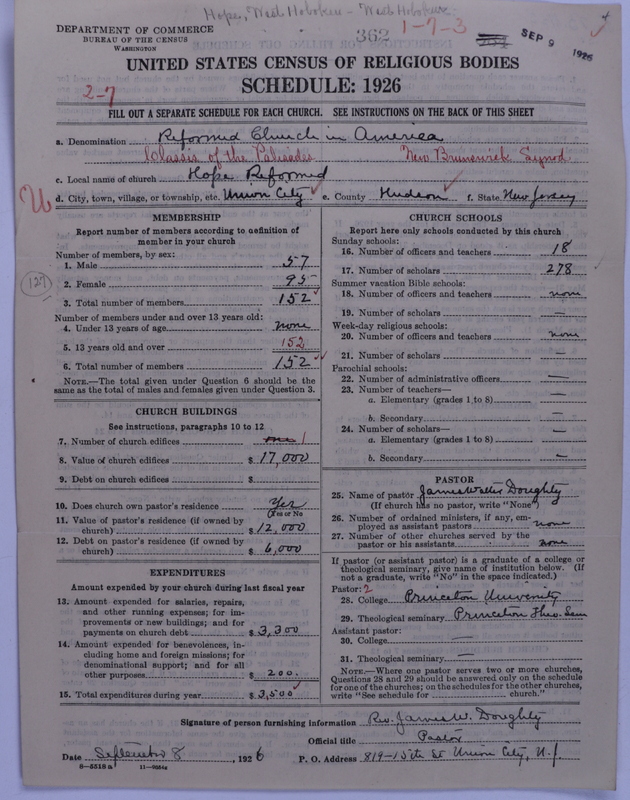 Hope, West Hoboken - West Hoboken
DEPARTMENT OF COMMERCE
BUREAU OF THE CENSUS
WASHINGTON
362
1-7-3
SEP 9 1926
UNITED STATES CENSUS OF RELIGIOUS BODIES
SCHEDULE: 1926
2-7
FILL OUT A SEPARATE SCHEDULE FOR EACH CHURCH. SEE INSTRUCTIONS ON THE BACK OF THIS SHEET
a. Denomination Reformed Church in America
Classis of the Palisades New Brunswick Synod
c. Local name of church Hope Reformed
d. City, town, village, or township, etc. Union City e. County Hudson f. State New Jersey
MEMBERSHIP
Report number of members according to definition of
member in your church
Number of members, by sex:
1. Male 57
2. Female 95
3. Total number of members 152
127
Number of members under and over 13 years old:
4. Under 13 years of age none
5. 13 years old and over 152
6. Total number of members 152
NOTE.—The total given under Question 6 should be the
same as the total of males and females given under Question 3.
CHURCH BUILDINGS
See instructions, paragraphs 10 to 12
7. Number of church edifices one 1
8. Value of church edifices $ 17,000
9. Debt on church edifices $
10. Does church own pastor's residence Yes
(Yes or No)
11. Value of pastor's residence (if owned by
church) $ 12,000
12. Debt on pastor's residence (if owned by
church) $ 6,000
EXPENDITURES
Amount expended by your church during last fiscal year
13. Amount expended for salaries, repairs,
and other running expenses; for im-
provements or new buildings; and for
payments on church debt $ 3,300
14. Amount expended for benevolences, in-
cluding home and foreign missions; for
denominational support; and for all
other purposes $ 200.
15. Total expenditures during year $ 3,500
CHURCH SCHOOLS
Report here only schools conducted by this church
Sunday schools:
16. Number of officers and teachers 18
17. Number of scholars 278
Summer vacation Bible schools:
18. Number of officers and teachers none
19. Number of scholars —
Week-day religious schools:
20. Number of officers and teachers none
21. Number of scholars —
Parochial schools:
22. Number of administrative officers —
23. Number of teachers—
a. Elementary (grades 1 to 8) —
b. Secondary —
24. Number of scholars—
a. Elementary (grades 1 to 8) —
b. Secondary —
PASTOR
25. Name of pastor James Walter Doughty
(If church has no pastor, write "None")
26. Number of ordained ministers, if any, em-
ployed as assistant pastors none
27. Number of other churches served by the
pastor or his assistants none
If pastor (or assistant pastor) is a graduate of a college or
theological seminary, give name of institution below. (If
not a graduate, write "No" in the space indicated.)
Pastor: 2
28. College Princeton University
29. Theological seminary Princeton Theo. Sem
Assistant pastor:
30. College —
31. Theological seminary —
NOTE.—Where one pastor serves two or more churches,
Questions 28 and 29 should be answered only on the schedule
for one of the churches; on the schedules for the other churches,
write "See schedule for church."
Signature of person furnishing information Rev. James W. Doughty
Official title Pastor
Date September 8, 1926 P. O. Address 819-15th St Union City, N.J.
8-5518a 11-9064a